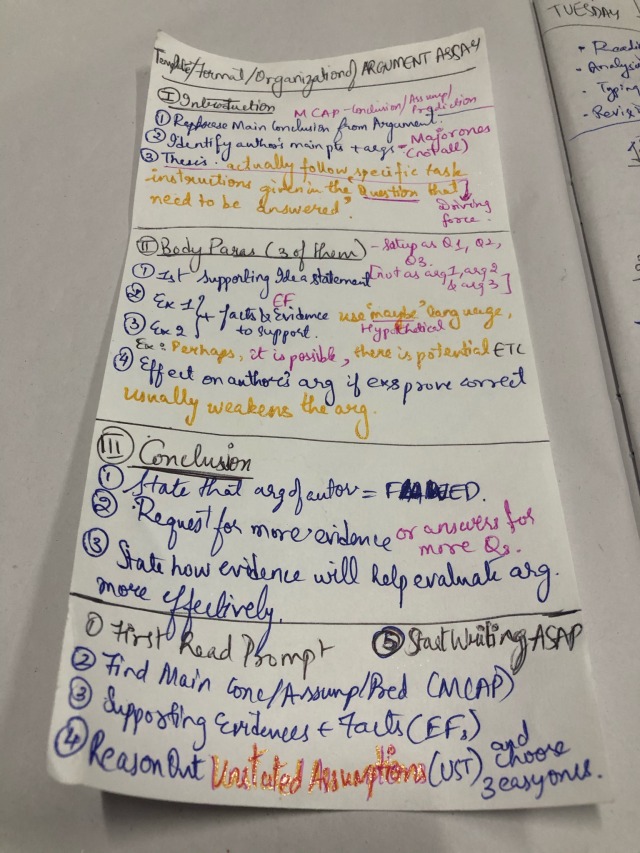 Template/Format/Organization of ARGUMENT ASSAY
I Introduction MCAP - Conclusion/Assump/Prediction
① Rephrase Main Conclusion from Argument.
② Identify author's main pts + args - Major ones (not all)
③ Thesis. actually follow specific task
instructions given in the "Question that
need to be answered". Driving force.
II Body Paras (3 of them) - Setup as Q1, Q2, Q3.
① 1st Supporting Idea statement [not as arg1, arg2 & arg3]
② Ex 1 } + facts & Evidence EF use "maybe" language,
③ Ex 2 to support. Hypothetical
Ex: Perhaps, it is possible, there is potential ETC
④ Effect on author's arg if exs prove correct
usually weakens the arg.
III Conclusion
① State that arg of autor = FLAWED.
② Request for more evidence or answers for more Qs.
③ State how evidence will help evaluate arg.
more effectively.
① First Read Prompt ⑤ Start Writing ASAP
② Find Main Conc/Assump/Pred (MCAP)
③ Supporting Evidences + Facts (EFs)
④ Reason Out Unstated Assumptions (UST) and choose 3 easy ones.
TUESDAY
• Readi
• Analysi
• Typing